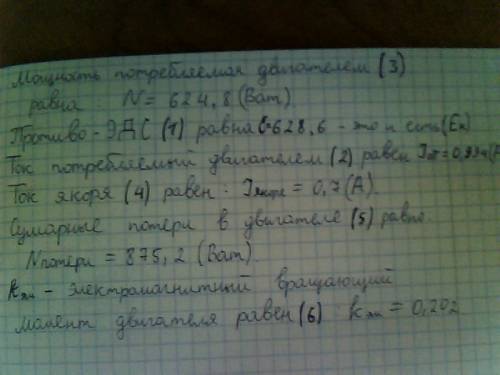 Мощность потребляемая двигателем (3)
равна: N = 624,8 (Ват)
Противо-ЭДС (1) равна 628,6 - это и есть (Eя)
Ток потребляемый двигателем (2) равен
Ток якоря (4) равен: Iякоря = 0,7 (А).
Сумарные потери в двигателе (5) равно
Nпотери = 875,2 (Ват).
kэм - электромагнитный вращающий
момент двигателя равен (6): kэм = 0,202